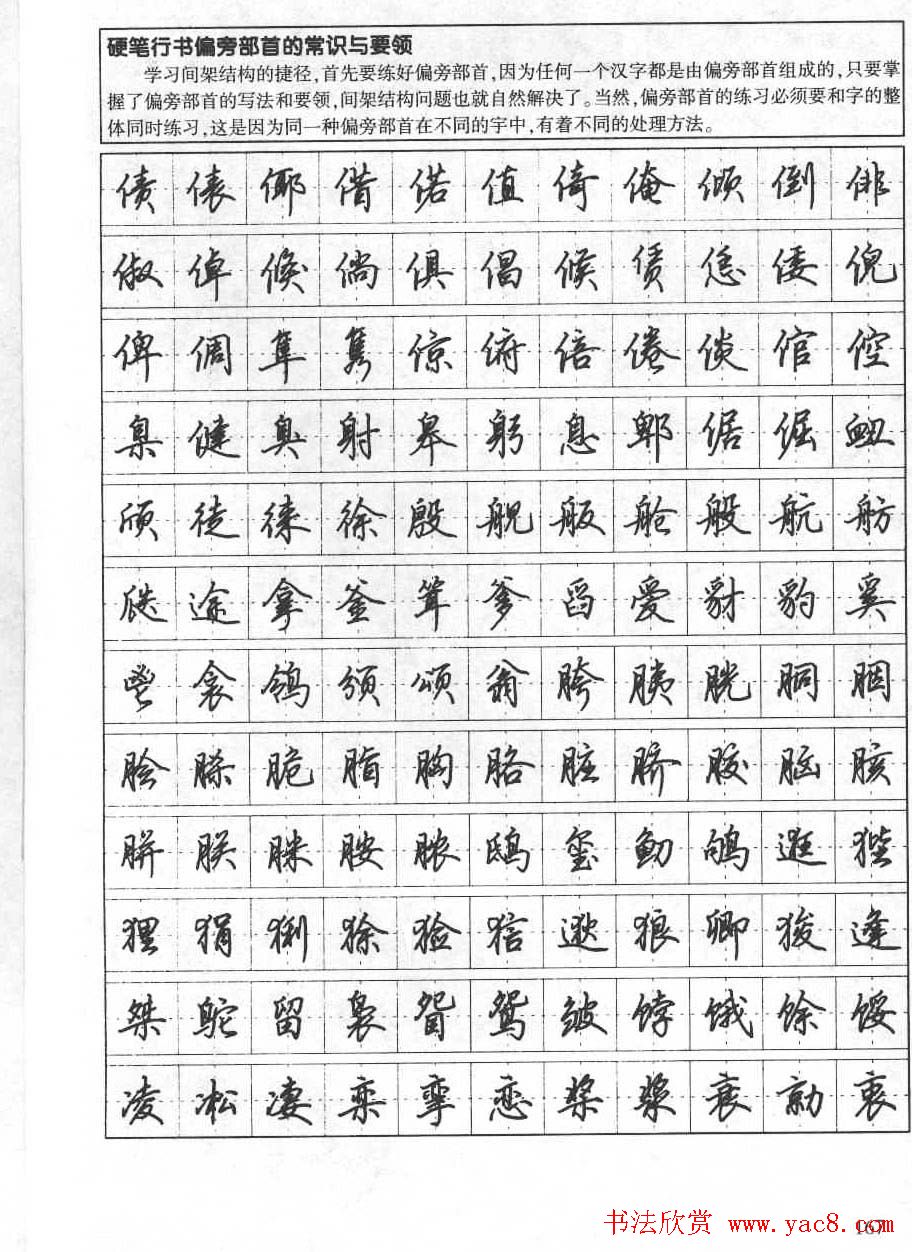 硬笔行书偏旁部首的常识与要领
学习间架结构的捷径,首先要练好偏旁部首,因为任何一个汉字都是由偏旁部首组成的,只要掌
握了偏旁部首的写法和要领,间架结构问题也就自然解决了。当然,偏旁部首的练习必须要和字的整
体同时练习,这是因为同一种偏旁部首在不同的字中,有着不同的处理方法。
债俵倻借偌值倚俺倾倒俳
俶倬倏倘俱倡候赁恁倭倪
俾倜隼隽倞俯倍倦倓倌倥
臬健臭射皋躬息郫倨倔衄
颀徒徕徐殷舰舨舱般航舫
瓞途拿釜耸爹舀爱豺豹奚
鬯衾鸰颁颂翁胯胰胱胴胭
脍脎脆脂胸胳脏脐胶脑胲
胼朕脒胺脓鸱玺鱽鸲逛狴
狸狷猁狳猃狺逖狼卿狻逢
桀鸵留袅眢鸳皱饽饿馀馁
凌凇凄栾挛恋桨浆衰勍衷
书法欣赏 www.yac8.com
167